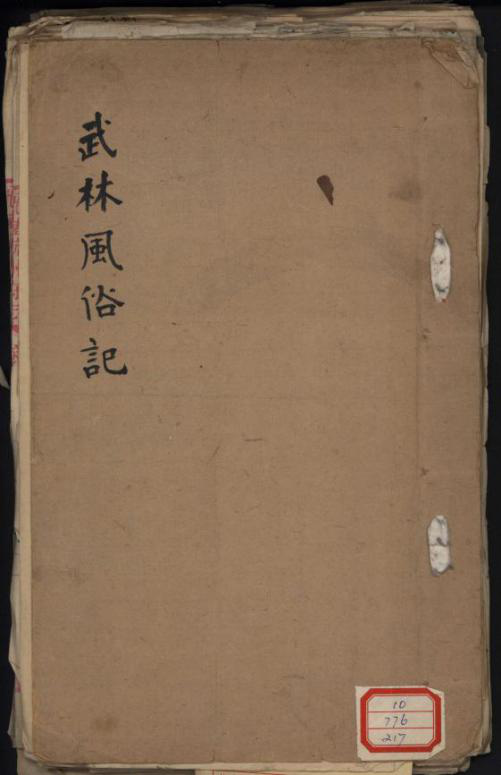 武林風俗記
10
776
217